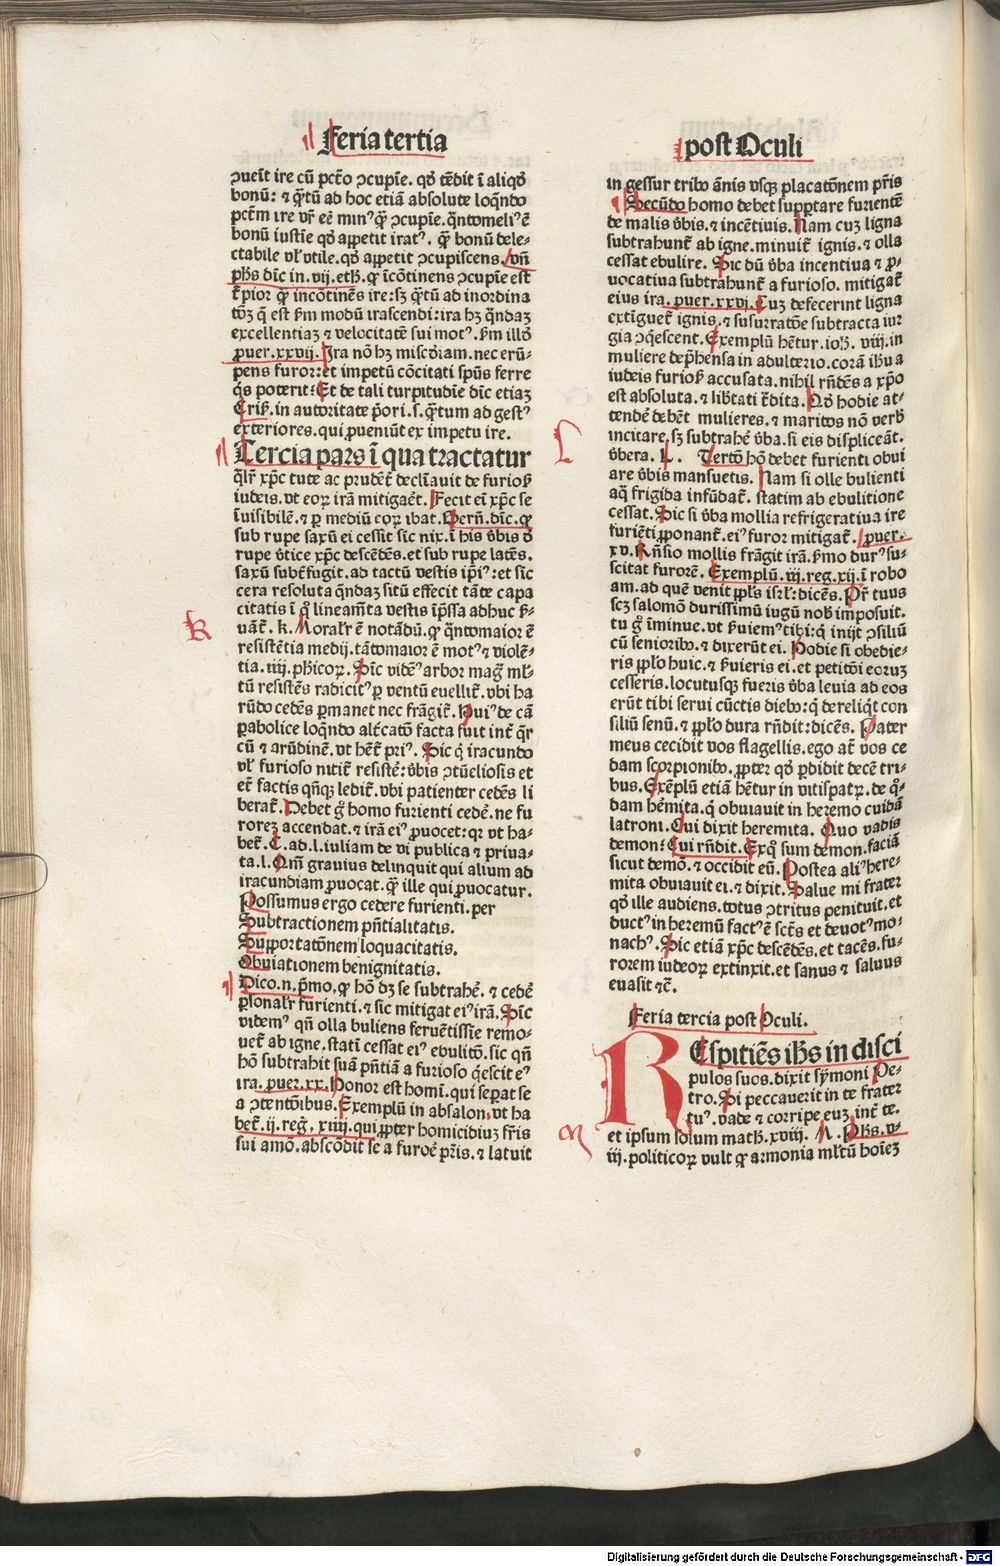 Feria tertia
post Oculi
ꝯueit ire cū pctō ꝯcupie. qď tēdit ī aliqď
bonū: ⁊ q̄tū ad hoc etiā absolute loqn̄do
pctm̄ ire vr̄ eē minꝰ qꝫ ꝯcupie. q̄ntomeliꝰ ē
bonū iustie qď appetit iratꝰ. qꝫ bonū dele-
ctabile vl̛ vtile. qď appetit ꝯcupiscens. vn̄
ph̄s dīc in. vij. eth. ꝙ īcōtinens ꝯcupie est
t̄pior qꝫ incōtinēs ire: sꝫ q̄tū ad inordina
tōꝫ q̄ est ẜm modū irascendi: ira hꝫ q̄ndaꝫ
excellentiaꝫ ⁊ velocitatē sui motꝰ. ẜm illď
ꝓuer. xxvij. Ira nō hꝫ miscďiam. nec erū-
pens furor: et impetū cōcitati spūs ferre
qs poterit: Et de tali turpitudīe dīc etiaꝫ
Criẜ. in autoritate p̄ori. s. q̄tum ad gestꝰ
exteriores. qui ꝓueniūt ex impetu ire.
Tercia pars ī qua tractatur
q̄lr̄ xp̄c tute ac prudēt̄ declīauit de furioẜ
iudeis. vt eoꝝ irā mitigaēt. Fecit eī xp̄c se
īuisibilē. ⁊ ꝑ mediū eoꝝ ibat. Bern̄. dīc. ꝙ
sub rupe saxū ei cessit sic nix. ī his v̄bis ď
rupe v̄tice xp̄c descēdēs. et sub rupe latēs.
saxū subt̄fugit. ad tactū vestis ip̄iꝰ: et sic
cera resoluta q̄ndaꝫ sitū effecit tāte capa
citatis ī q̄ lineam̄ta vestis ip̄ssa adhuc ẜ-
uāt̄. k. Moralr̄ ē notādū. ꝙ q̄ntomaior ē
resistētia medij. tātomaior ē motꝰ ⁊ violē-
tia. iiij. phicoꝝ. Sic videꝰ arbor maḡ ml̛-
tū resistēs radicitꝰ ꝑ ventū euellit̄. vbi ha
rūdo cedēs ꝑmanet nec frāgit̄. Hui de cā
ꝑabolice loqn̄do alt̄catō facta fuit int̄ q̄r
cū ⁊ arūdinē. vt hēt̄ priꝰ. Sic q̄ iracundo
vl̛ furioso nitit̄ resistē: v̄bis ꝯtūeliosis et
et̄ factis qn̄qꝫ ledit̄. vbi patienter cedēs li
berat̄. Debet g̊ homo furienti cedē. ne fu
roreꝫ accendat. ⁊ irā eiꝰ ꝓuocet: qꝛ vt ha-
bet̄. C. ad. l. iuliam de vi publica ⁊ priua-
ta. l. Qm̄ grauius delinquit qui alium ad
iracundiam ꝓuocat. qꝫ ille qui ꝓuocatur.
Possumus ergo cedere furienti. per
Subtractionem pn̄tialitatis.
Supportatōnem loquacitatis.
Obuiationem benignitatis.
Dico. n. p̄mo. ꝙ hō dꝫ se subtrahē. ⁊ cedē
ꝑsonalr̄ furienti. ⁊ sic mitigat eiꝰ irā. Sic
videmꝰ qn̄ olla buliens feruētissie remo-
uet̄ ab igne. statī cessat eiꝰ ebulitō. sic qn̄
hō subtrahit suā pn̄tiā a furioso q̄escit eꝰ
ira. ꝓuer. xx. Honor est homī. qui seꝑat se
a ꝯtentōibus. Exemplū in absalon. vt ha
bet̄. ij. reḡ. xiiij. qui ꝓpter homicidiuꝫ fr̄is
sui amō. abscōdit se a furoē pr̄is. ⁊ latuit
k
in gessur tribꝰ ānis vsqꝫ placatōnem pr̄is
Secūdo homo debet supportare furientē
de malis v̄bis. ⁊ incētiuis. Nam cuꝫ ligna
subtrahunt̄ ab igne. minuit̄ ignis. ⁊ olla
cessat ebulire. Sic dū v̄ba incentiua ⁊ ꝓ-
uocatiua subtrahunt̄ a furioso. mitigat̄
eius ira. ꝓuer. xxvi. Cuꝫ defecerint ligna
extīguet̄ ignis. ⁊ susurratōe subtracta iur
gia ꝯq̄escent. Exemplū hētur. ioh. viij. in
muliere dep̄hensa in adulterio. corā ihū a
iudeis furioẜ accusata. nihil rn̄dēs a xp̄o
est absoluta. ⁊ lib̄tati t̄dita. Qď hodie at-
tendē debēt mulieres. ⁊ maritos nō verb̄
incitare. sꝫ subtrahē v̄ba. si eis displiceāt.
v̄bera. L. Tertō hō debet furienti obui
are v̄bis mansuetis. Nam si olle bulienti
aq̄ frigida infūdat̄. statim ab ebulitione
cessat. Sic si v̄ba mollia refrigeratiua ire
furiēti ꝓponant̄. eiꝰ furor mitigat̄. ꝓuer.
xv. Rn̄sio mollis frāgit irā. ẜmo durꝰ su-
scitat furorē. Exemplū. iij. reg. xij. ī robo
am. ad quē venit ppl̄s isrl̄: dicēs. Pr̄ tuus
scꝫ salomō durissimū iugū nob̄ imposuit.
tu g̊ īminue. vt ẜuiemꝰ tibi: q̄ inijt ꝯsiliū
cū seniorib̄. ⁊ dixerūt ei. Hodie si obedie-
ris ppl̄o huic. ⁊ ẜuieris ei. et petitōi eoruꝫ
cesseris. locutusqꝫ fueris v̄ba leuia ad eos
erūt tibi serui cūctis diebꝰ: q̄ dereliq̄t con
siliū senū. ⁊ ppl̄o dura rn̄dit: dicēs. Pater
meus cecidit vos flagellis. ego at̄ vos ce
dam scorpionibꝰ. ꝓpter qď ꝑdidit decē tri-
bus. Exēplū etiā hētur in vitispatꝝ. de q̊-
dam hēmita. q̄ obuiauit in heremo cuidā
latroni. Cui dixit heremita. Quo vadis
demon: Cui rn̄dit. Exq̊ sum demon. faciā
sicut demō. ⁊ occidit eū. Postea aliꝰ here-
mita obuiauit ei. ⁊ dixit. Salue mi frater
qď ille audiens. totus ꝯtritus penituit. et
ductꝰ in heremū factꝰ ē sct̄s et deuotꝰ mo-
nachꝰ. Sic etiā xp̄c descēdēs. et tacēs. fu-
rorem iudeoꝝ extinxit. et sanus ⁊ saluus
euasit ⁊c̄.
L
Feria tercia post Oculi.
REspitiēs ihs in disci
pulos suos. dixit symoni Pe-
tro. Si peccauerit in te frater
tuꝰ. vade ⁊ corripe euꝫ int̄ te.
et ipsum solum math. xviij. M. Phs. v-
iij. politicoꝝ vult ꝙ armonia ml̛tū hoīeꝫ
M
Digitalisierung gefördert durch die Deutsche Forschungsgemeinschaft - DFG